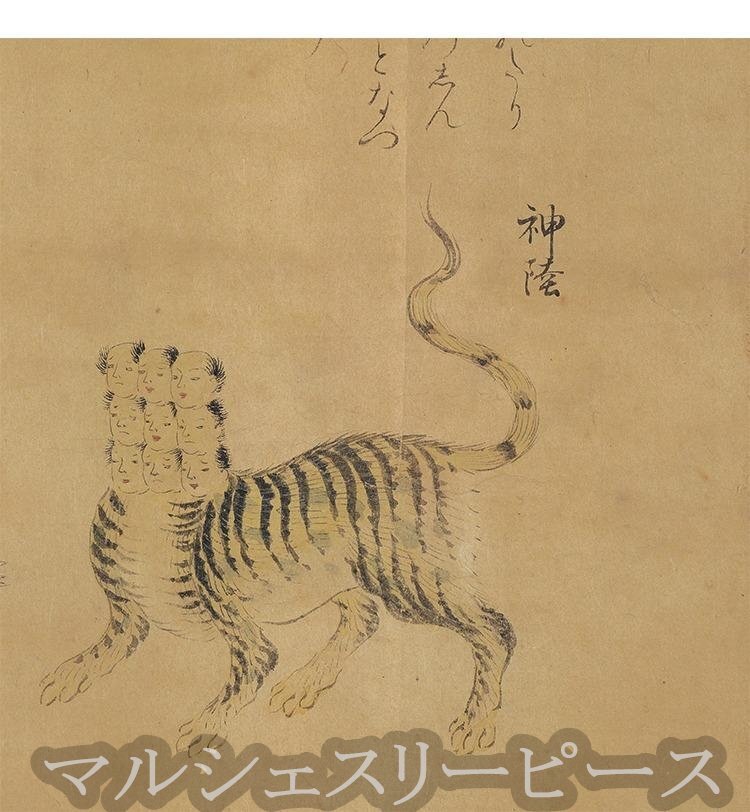 たり
しん
となつ
神陸
マルシェスリーピース